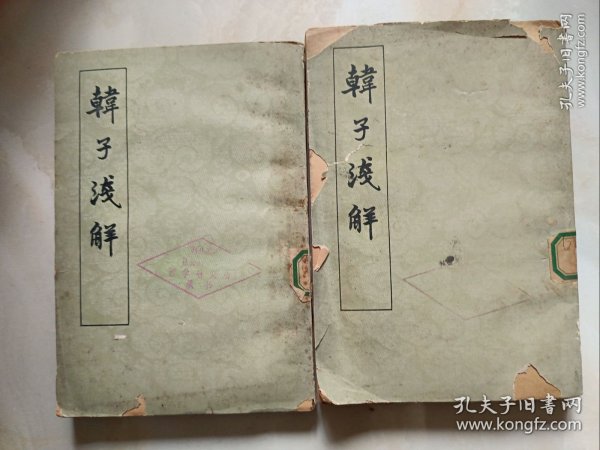 韓子淺解
韓子淺解
孔夫子旧书网
www.kongfz.com
孔夫子旧书网
www.kongfz.com